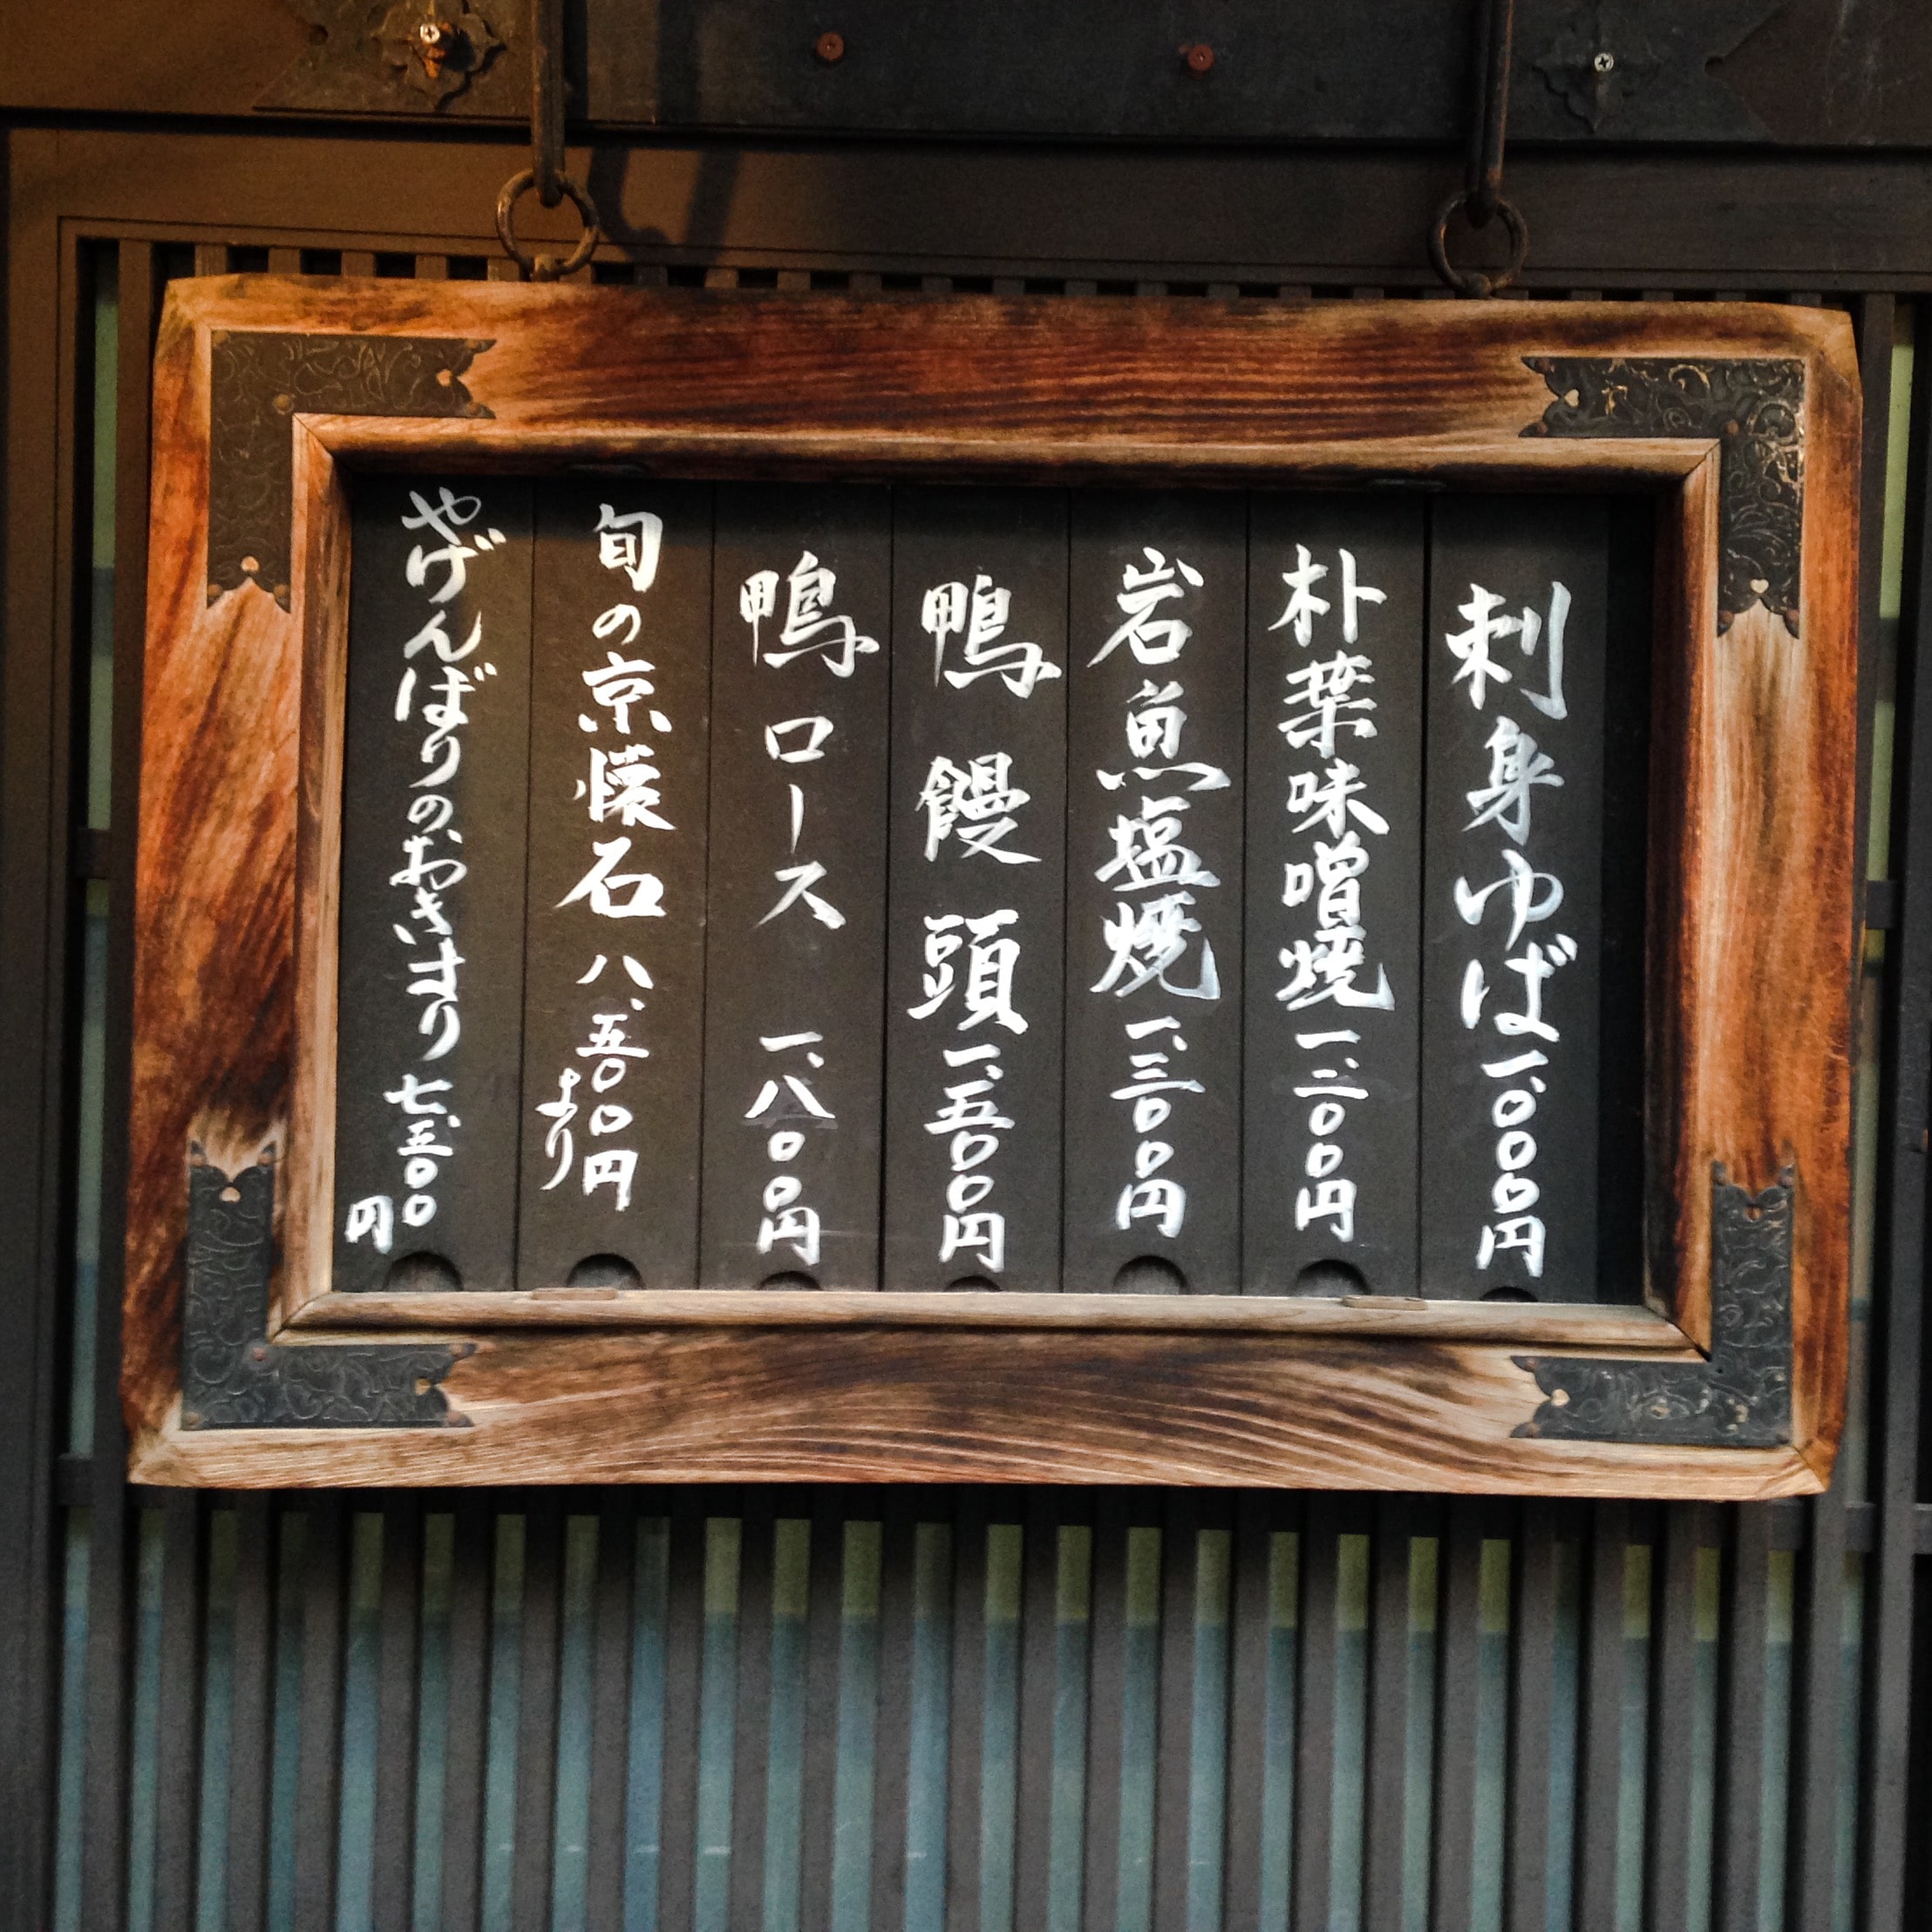 刺身ゆば一、〇〇〇円
朴葉味噌焼一、二〇〇円
岩魚塩焼一、三〇〇円
鴨饅頭一、五〇〇円
鴨ロース一、八〇〇円
旬の京懐石八、五〇〇円より
やげんぼりのおきまり七、五〇〇円